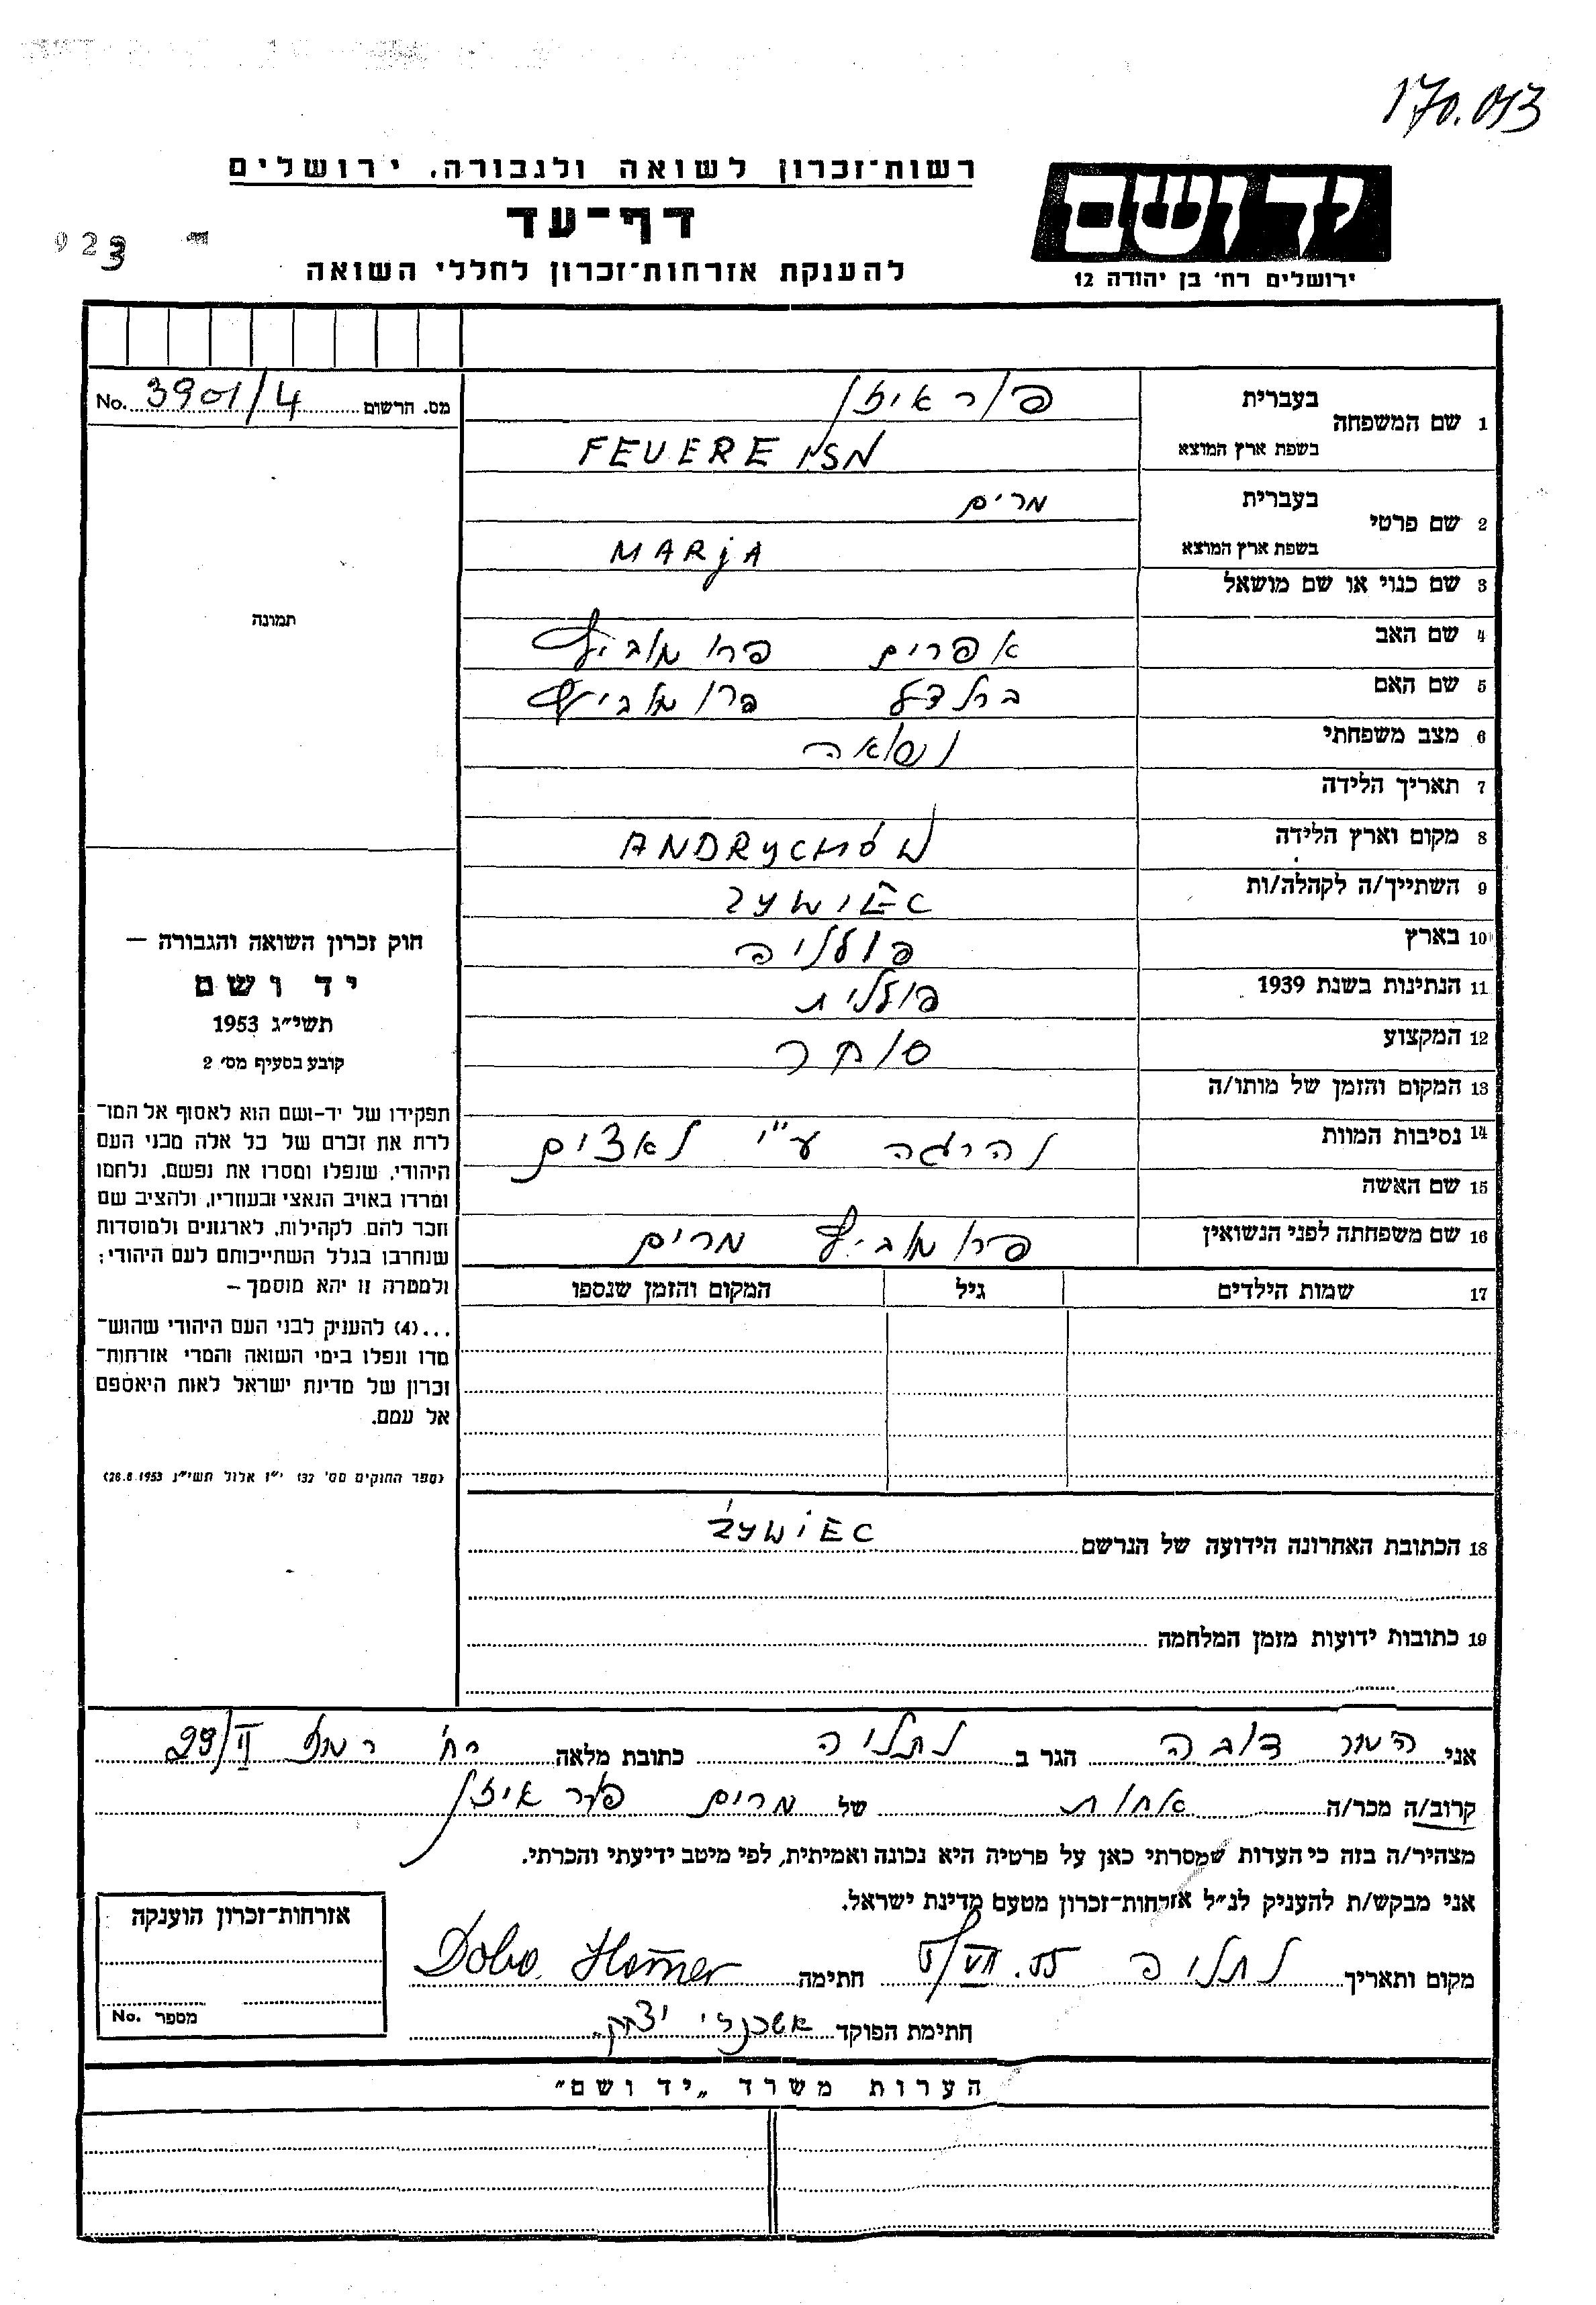 170.013
רשות־זכרון לשואה ולגבורה, ירושלים
דף־עד
להענקת אזרחות־זכרון לחללי השואה
923
יד ושם
ירושלים רח' בן יהודה 12
מס. הרשום No. 3901/4
1 שם המשפחה בעברית פוראיזן
בשפת ארץ המוצא FEUEREISN
2 שם פרטי בעברית מרים
בשפת ארץ המוצא MARjA
3 שם כנוי או שם מושאל
4 שם האב אפרים
5 שם האם
6 מצב משפחתי נשואה
7 תאריך הלידה
8 מקום וארץ הלידה ANDRyCHÓW
9 השתייך/ה לקהלה/ות ŻyWiEC
10 בארץ פולניה
11 הנתינות בשנת 1939 פולנית
12 המקצוע סוחר
13 המקום והזמן של מותו/ה
14 נסיבות המוות נהרגה ע"י נאצים
15 שם האשה
16 שם משפחתה לפני הנשואין מרים
17 שמות הילדים גיל המקום והזמן שנספו
18 הכתובת האחרונה הידועה של הנרשם ŻyWiEC
19 כתובות ידועות מזמן המלחמה
תמונה
חוק זכרון השואה והגבורה –
יד ושם
תשי"ג 1953
קובע בסעיף מס' 2
תפקידו של יד-ושם הוא לאסוף אל המו־
לדת את זכרם של כל אלה מבני העם
היהודי, שנפלו ומסרו את נפשם, נלחמו
ומרדו באויב הנאצי ובעוזריו, ולהציב שם
וזכר להם, לקהילות, לארגונים ולמוסדות
שנחרבו בגלל השתייכותם לעם היהודי;
ולמטרה זו יהא מוסמך –
...(4) להעניק לבני העם היהודי שהוש־
מדו ונפלו בימי השואה והמרי אזרחות־
זכרון של מדינת ישראל לאות היאספם
אל עמם.
(ספר החוקים מס' 132 י"ז אלול תשי"ג 28.8.1953)
אני המר דובה הגר ב נתניה כתובת מלאה רח'
קרוב/ה מכר/ה אחות של מרים פוראיזן
מצהיר/ה בזה כי העדות שמסרתי כאן על פרטיה היא נכונה ואמיתית, לפי מיטב ידיעתי והכרתי.
אני מבקש/ת להעניק לנ"ל אזרחות־זכרון מטעם מדינת ישראל.
מקום ותאריך נתניה 5/VII.55 חתימה Doba Hamer
חתימת הפוקד אשכנזי יצחק
אזרחות־זכרון הוענקה
מספר No.
הערות משרד „יד ושם"